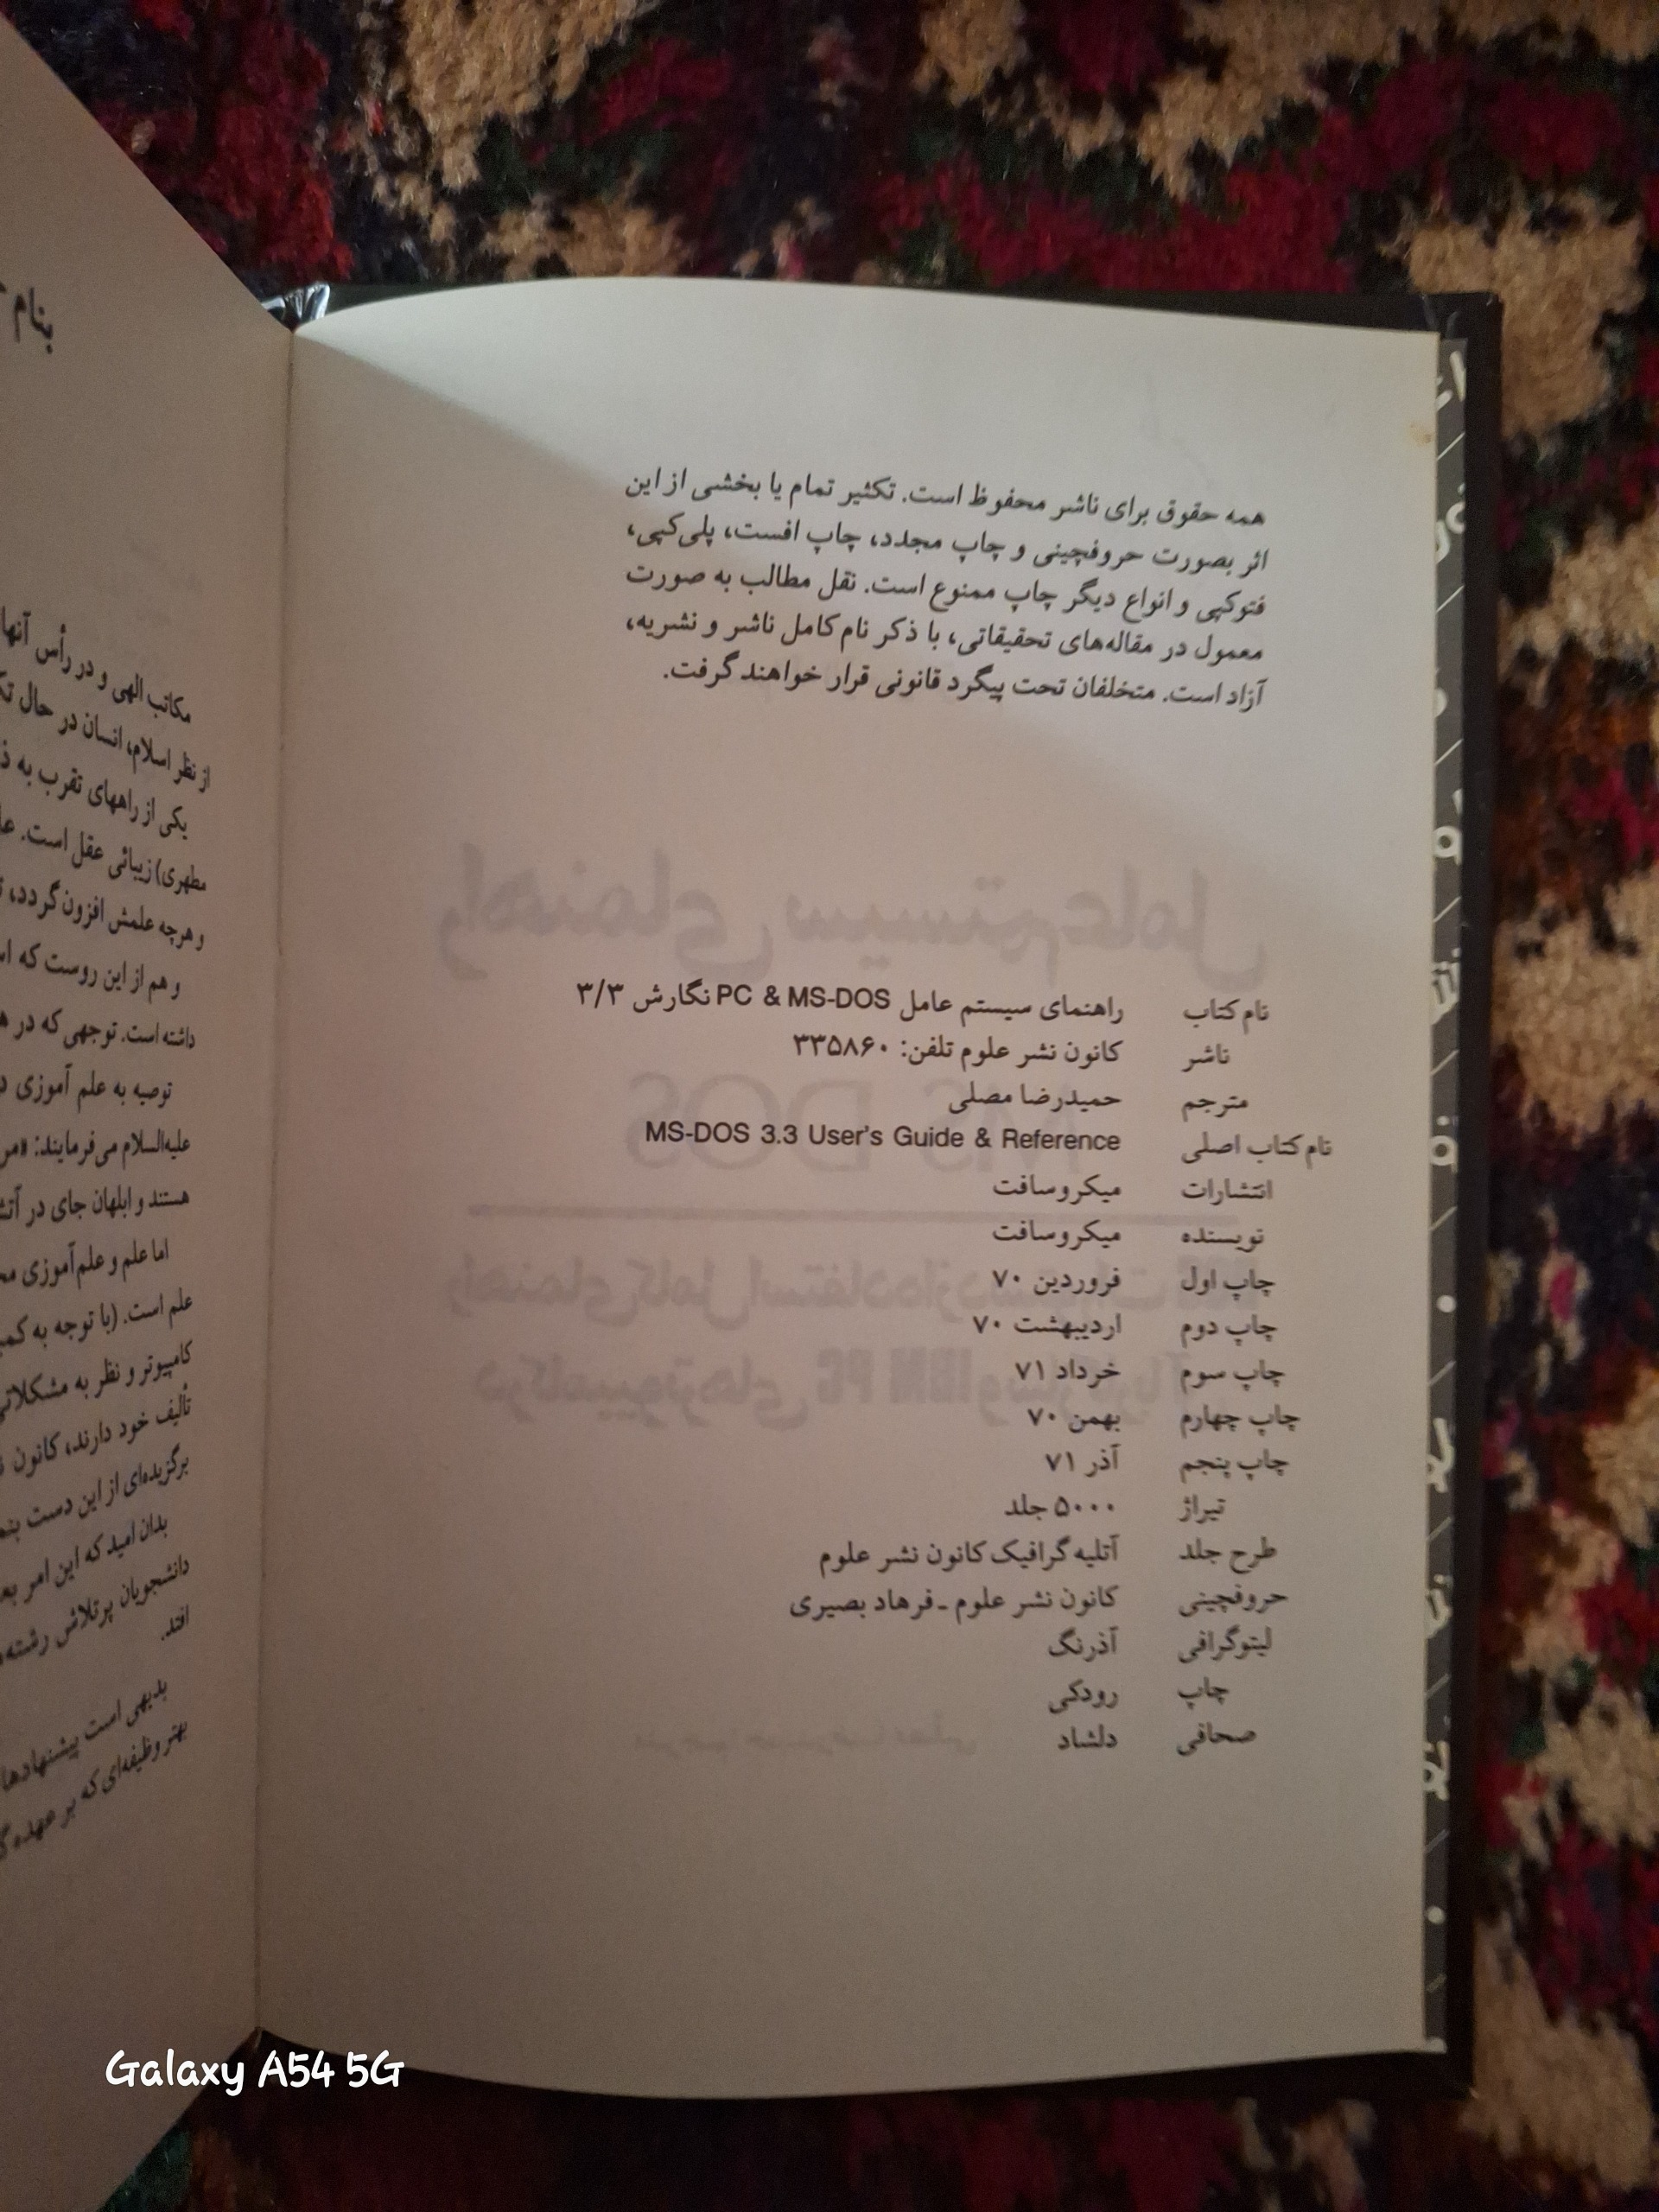 همه حقوق برای ناشر محفوظ است. تکثیر تمام یا بخشی از این
اثر بصورت حروفچینی و چاپ مجدد، چاپ افست، پلی‌کپی،
فتوکپی و انواع دیگر چاپ ممنوع است. نقل مطالب به صورت
معمول در مقاله‌های تحقیقاتی، با ذکر نام کامل ناشر و نشریه،
آزاد است. متخلفان تحت پیگرد قانونی قرار خواهند گرفت.
نام کتاب راهنمای سیستم عامل PC & MS-DOS نگارش ۳/۳
ناشر کانون نشر علوم تلفن: ۳۳۵۸۶۰
مترجم حمیدرضا مصلی
نام کتاب اصلی MS-DOS 3.3 User's Guide & Reference
انتشارات میکروسافت
نویسنده میکروسافت
چاپ اول فروردین ۷۰
چاپ دوم اردیبهشت ۷۰
چاپ سوم خرداد ۷۱
چاپ چهارم بهمن ۷۰
چاپ پنجم آذر ۷۱
تیراژ ۵۰۰۰ جلد
طرح جلد آتلیه گرافیک کانون نشر علوم
حروفچینی کانون نشر علوم - فرهاد بصیری
لیتوگرافی آذرنگ
چاپ رودکی
صحافی دلشاد
بنام
مکاتب الهی و در رأس آنها
از نظر اسلام، انسان در حال
یکی از راههای تقرب به
مطهری) زیبائی عقل است.
و هرچه علمش افزون گردد،
و هم از این روست که
داشته است. توجهی که در
توصیه به علم آموزی
علیه‌السلام می‌فرمایند:
هستند و ابلهان جای در
اما علم و علم‌آموزی
علم است. (با توجه به
کامپیوتر و نظر به مشکلاتی
تألیف خود دارند، کانون
برگزیده‌ای از این دست
بدان امید که این امر
دانشجویان پرتلاش
افتد.
بدیهی است پیشنهادها
بهتر وظیفه‌ای که بر عهده
Galaxy A54 5G